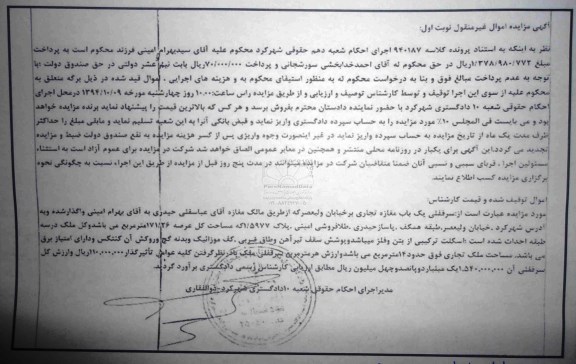 آگهی مزایده اموال غیرمنقول نوبت اول:
نظر به اینکه به استناد پرونده کلاسه ۹۴۰۱۸۷ اجرای احکام شعبه دهم حقوقی شهرکرد محکوم علیه آقای سیدبهرام امینی فرزند محکوم است به پرداخت
مبلغ ۱/۳۷۸/۹۸۰/۷۷۲ریال در حق محکوم له آقای احمدخدابخشی سورشجانی و پرداخت ۷۰/۰۰۰/۰۰۰ریال بابت نیم عشر دولتی در حق صندوق دولت با
توجه به عدم پرداخت مبالغ فوق و بنا به درخواست محکوم له به منظور استیفای محکوم به و هزینه های اجرایی ، اموال قید شده در ذیل برگه متعلق به
محکوم علیه از سوی این اجرا توقیف و توسط کارشناس توصیف و ارزیابی و از طریق مزایده راس ساعت:۱۰.۰۰ روز چهارشنبه مورخه ۱۳۹۴/۱۰/۰۹ درمحل اجرای
احکام حقوقی شعبه ۱۰ دادگستری شهرکرد با حضور نماینده دادستان محترم بفروش برسد و هر کس که بالاترین قیمت را پیشنهاد نماید برنده مزایده خواهد
بود و می بایست فی المجلس ۱۰٪ مورد مزایده را به حساب سپرده دادگستری واریز نماید و فیش بانکی آنرا به این شعبه تسلیم نماید و مابقی مبلغ را حداکثر
ظرف مدت یک ماه از تاریخ مزایده به حساب سپرده واریز نماید در غیر اینصورت وجوه واریزی پس از کسر هزینه مزایده به نفع صندوق دولت ضبط و مزایده
تجدید می گردد.این آگهی برای یکبار در روزنامه محلی منتشر و همچنین در معابر عمومی الصاق خواهد شد شرکت در مزایده برای عموم آزاد است به استثناء
مسئولین اجرا، اقربای سببی و نسبی آنان ضمنا متقاضیان شرکت در مزایده میتوانند در مدت پنج روز قبل از مزایده از طریق این اجراء نسبت به چگونگی نحوه
برگزاری مزایده کسب اطلاع نمایند.
اموال توقیف شده و قیمت کارشناس:
مورد مزایده عبارت است از:سرقفلی یک باب مغازه تجاری برخیابان ولیعصرکه ازطریق مالک مغازه آقای عباسقلی حیدری به آقای بهرام امینی واگذارشده وبه
آدرس شهرکرد ،خیابان ولیعصر،طبقه همکف ،پاساژحیدری ،طلافروشی امینی ،پلاک ۵۹۷۷/اکه مساحت کل عرصه ۱۷۱/۲۶مترمربع می باشدوکل ملک درسه
طبقه احداث شده است.اسکلت ترکیبی از بتن وفلز میباشدوپوشش سقف تیرآهن وطاق ضربی .کف موزائیک وبدنه گچ وروکش آن کنتکس ودارای امتیاز برق
می باشد. مساحت ملک تجاری فوق حدود۱۴مترمربع می باشدوارزش هرمترمربع سرقفلی ملک بادرنظرگرفتن کلیه عوامل تأثیرگذار۱۱۰.۰۰۰.۰۰۰ریال وارزش کل
سرقفلی آن ۱.۵۴۰.۰۰۰.۰۰۰یک میلیاردوپانصدوچهل میلیون ریال مطابق ارزیابی کارشناس رسمی دادگستری برآورد گردید.
مدیراجرای احکام حقوقی شعبه ۱۰دادگستری شهرکرد-ذوالفقاری